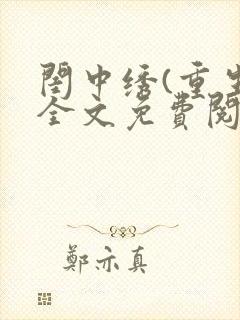 閨中绣(重生
全文免費閱
鄭亦真